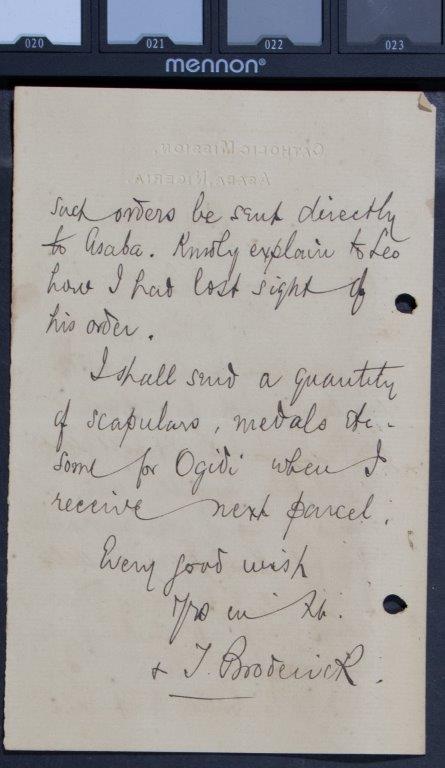 020 021 022 023
mennon®
CATHOLIC MISSION,
ASABA, NIGERIA.
such orders be sent directly
to Asaba. Kindly explain to Leo
how I had lost sight of
his order.
I shall send a quantity
of scapulars, medals etc.
some for Ogidi when I
receive next parcel.
Every good wish
Yrs in Xt.
+ T. Broderick.